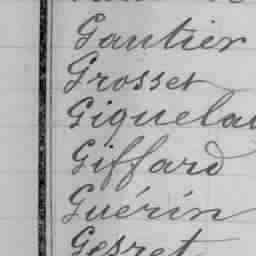 Gautier
Grosset
Giquelau
Giffard
Guérin
Gesret